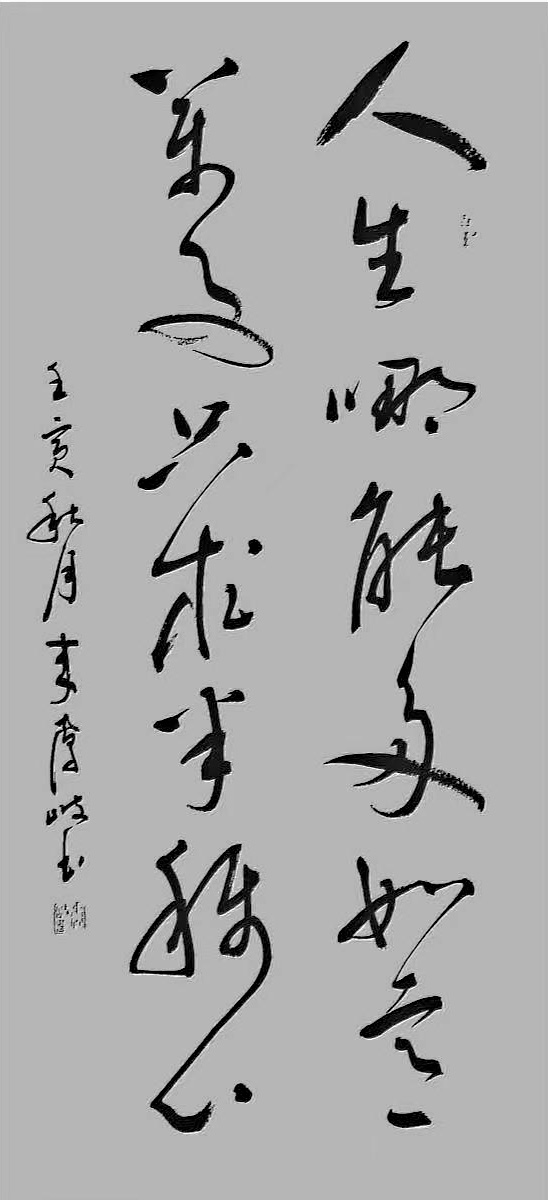 人生哪能多如意
萬事只求半稱心
壬寅秋月李彦岐书